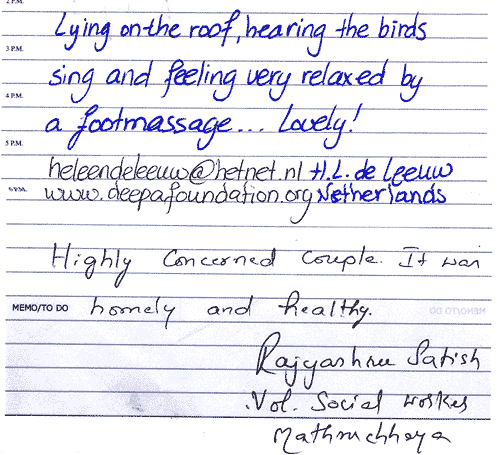 2 P.M.
Lying on the roof, hearing the birds
3 P.M.
sing and feeling very relaxed by
4 P.M.
a footmassage... Lovely!
5 P.M.
heleendeleeuw@hetnet.nl H.L. de Leeuw
6 P.M. www.deepafoundation.org Netherlands
Highly Concerned Couple. It was
MEMO/TO DO homely and healthy.
Rajyashree Satish
Vol. Social worker
Mathruchhaya